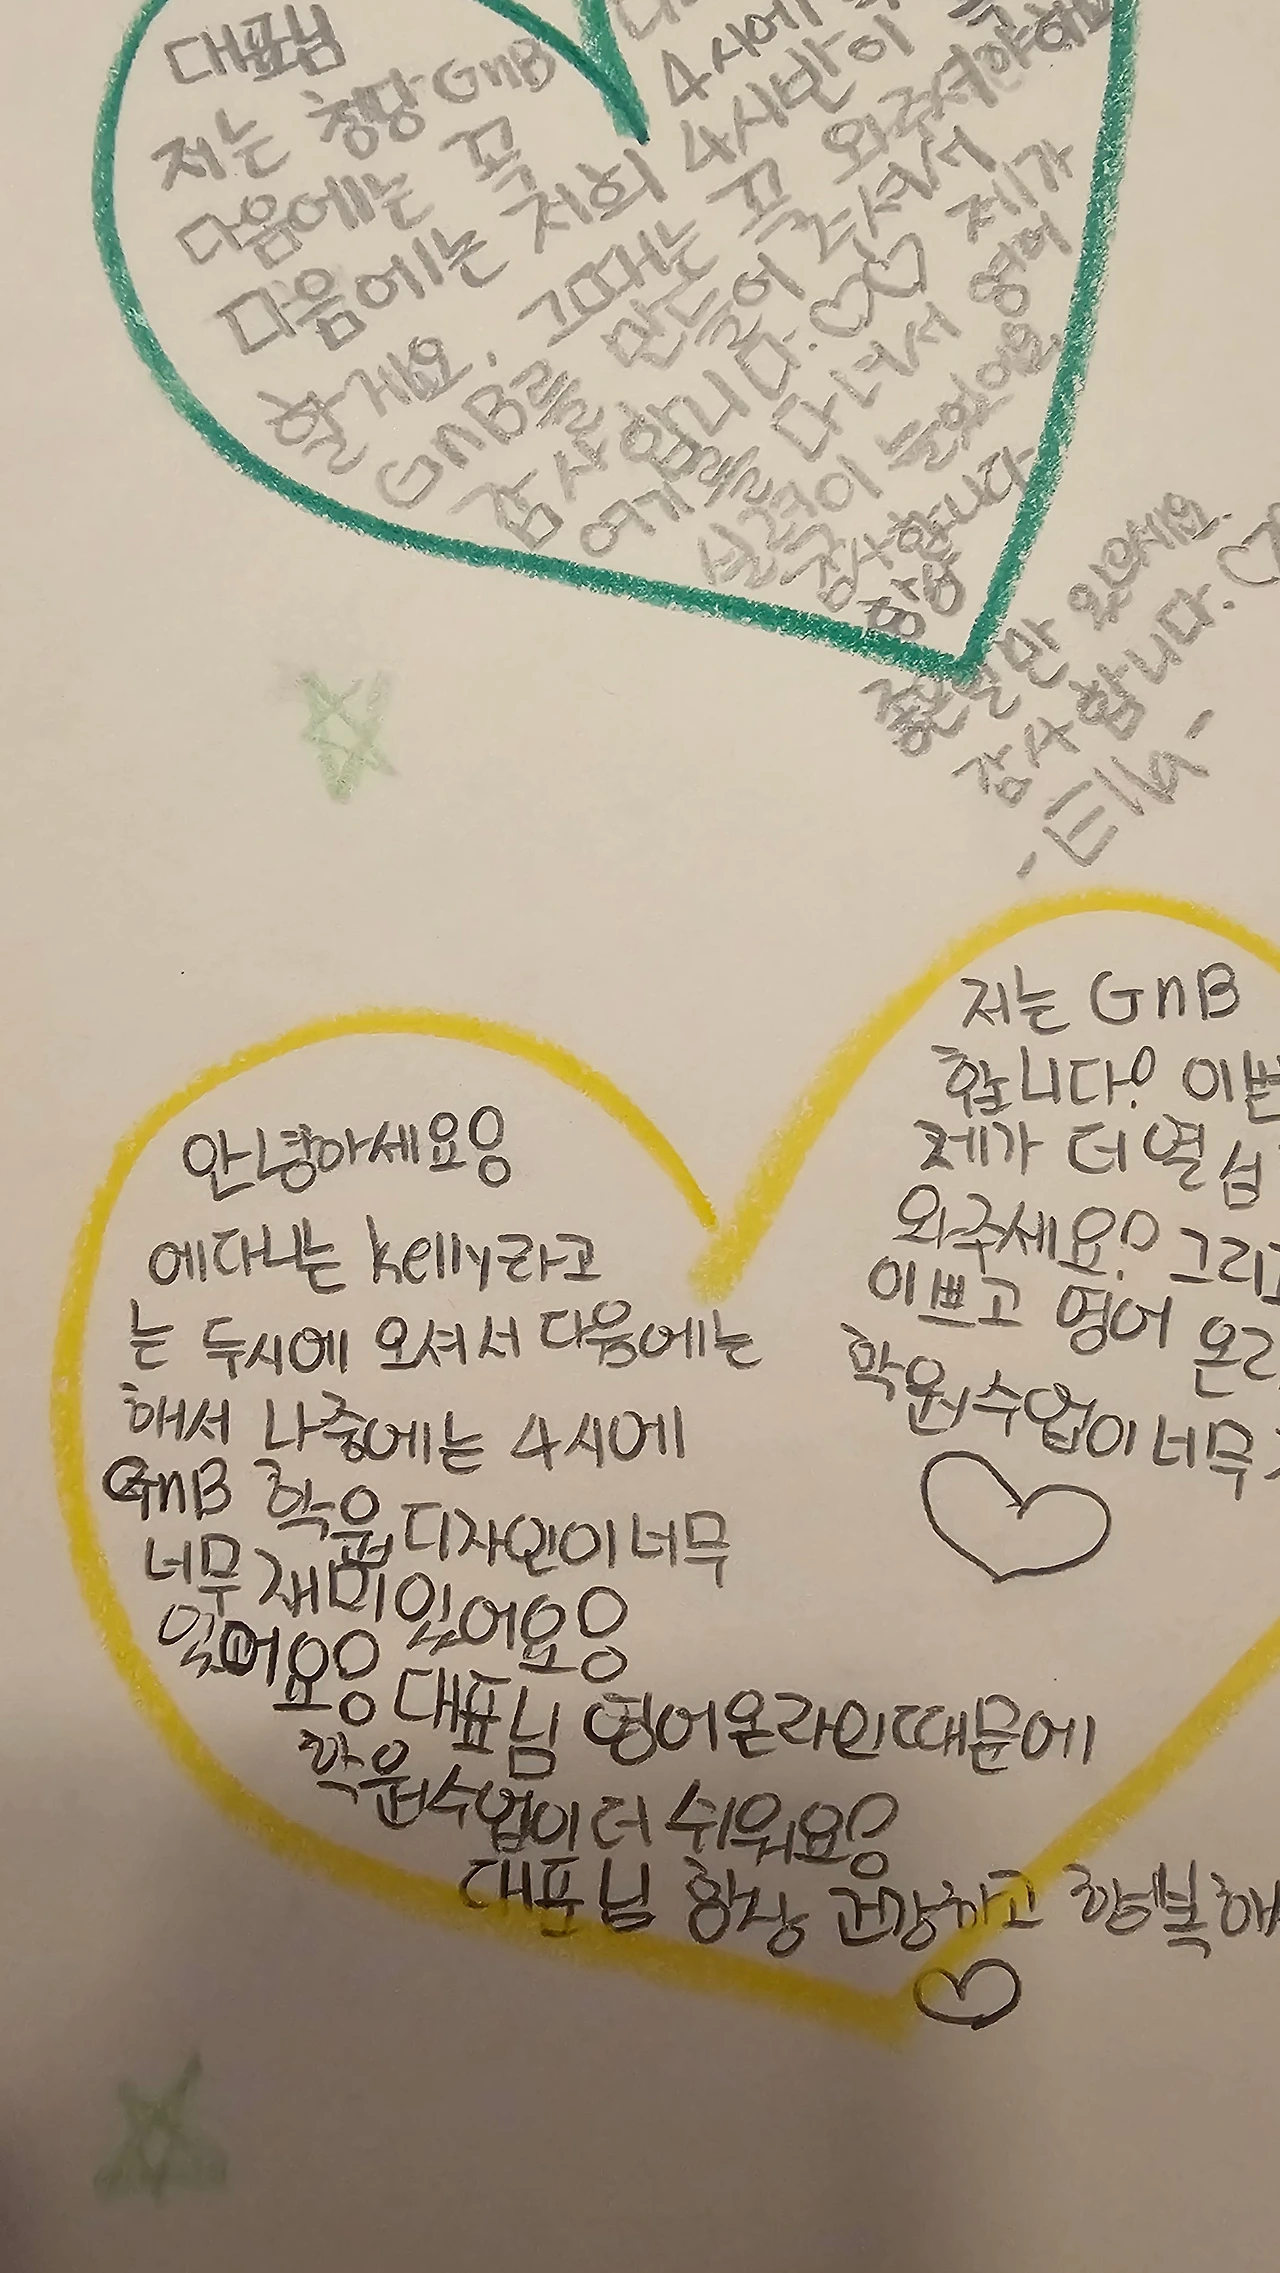 대표님
저는 청당 GnB
다음에는 꼭 4시에
다음에는 저희 4시반이
할게요. 그때는 꼭 와주셔야해요
GnB를 만들어 주셔서
감사합니다.♡♡ 제가
여기를 다녀서 영어
실력이 늘었어요
감사합니다
항상
좋은일만 있으세요.
감사합니다.♡
-Ella-
안녕하세요용
에다니는 kelly라고
는 두시에 오셔서 다음에는
해서 나중에는 4시에
GnB 학원 디자인이 너무
너무 재미있어요용
있어요용 대표님 영어온라인때문에
학원수업이 더 쉬워요용
대표님 항상 건강하고 행복해
♡
저는 GnB
합니다! 이쁜
제가 더 열심
와주세요! 그리고
이쁘고 영어 온라
학원수업이 너무
♡